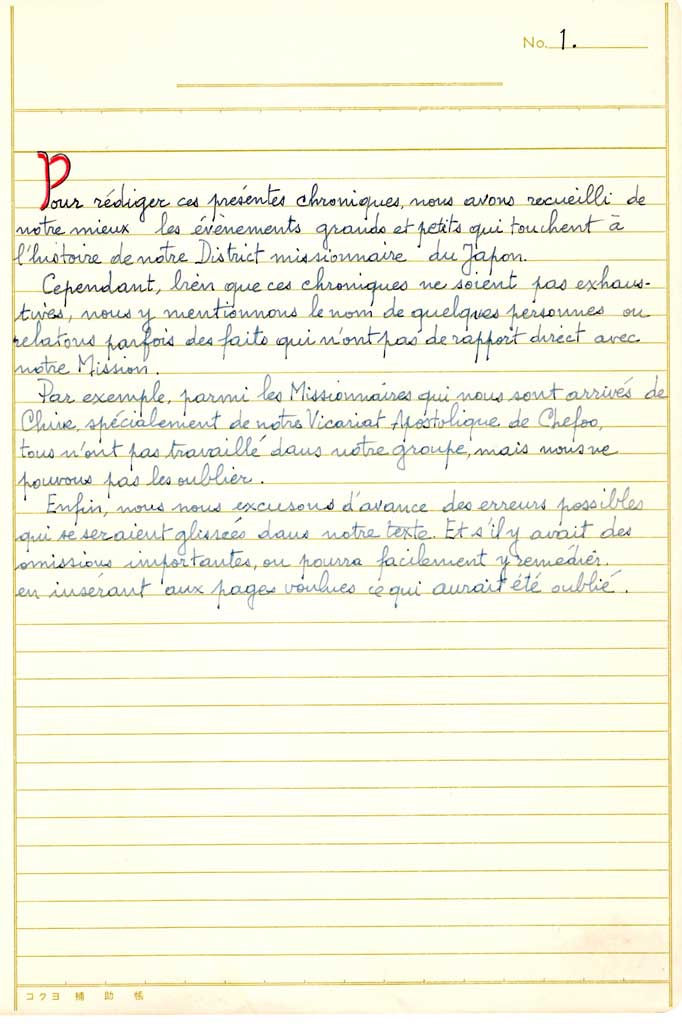 No. 1.
Pour rédiger ces présentes chroniques, nous avons recueilli de
notre mieux les évènements grands et petits qui touchent à
l'histoire de notre District missionnaire du Japon.
Cependant, bien que ces chroniques ne soient pas exhaus-
tives, nous y mentionnons le nom de quelques personnes ou
relatons parfois des faits qui n'ont pas de rapport direct avec
notre Mission.
Par exemple, parmi les Missionnaires qui nous sont arrivés de
Chine, spécialement de notre Vicariat Apostolique de Chefoo,
tous n'ont pas travaillé dans notre groupe, mais nous ne
pouvons pas les oublier.
Enfin, nous nous excusons d'avance des erreurs possibles
qui se seraient glissées dans notre texte. Et s'il y avait des
omissions importantes, on pourra facilement y remédier.
en insérant aux pages voulues ce qui aurait été oublié.
コクヨ 補 助 帳